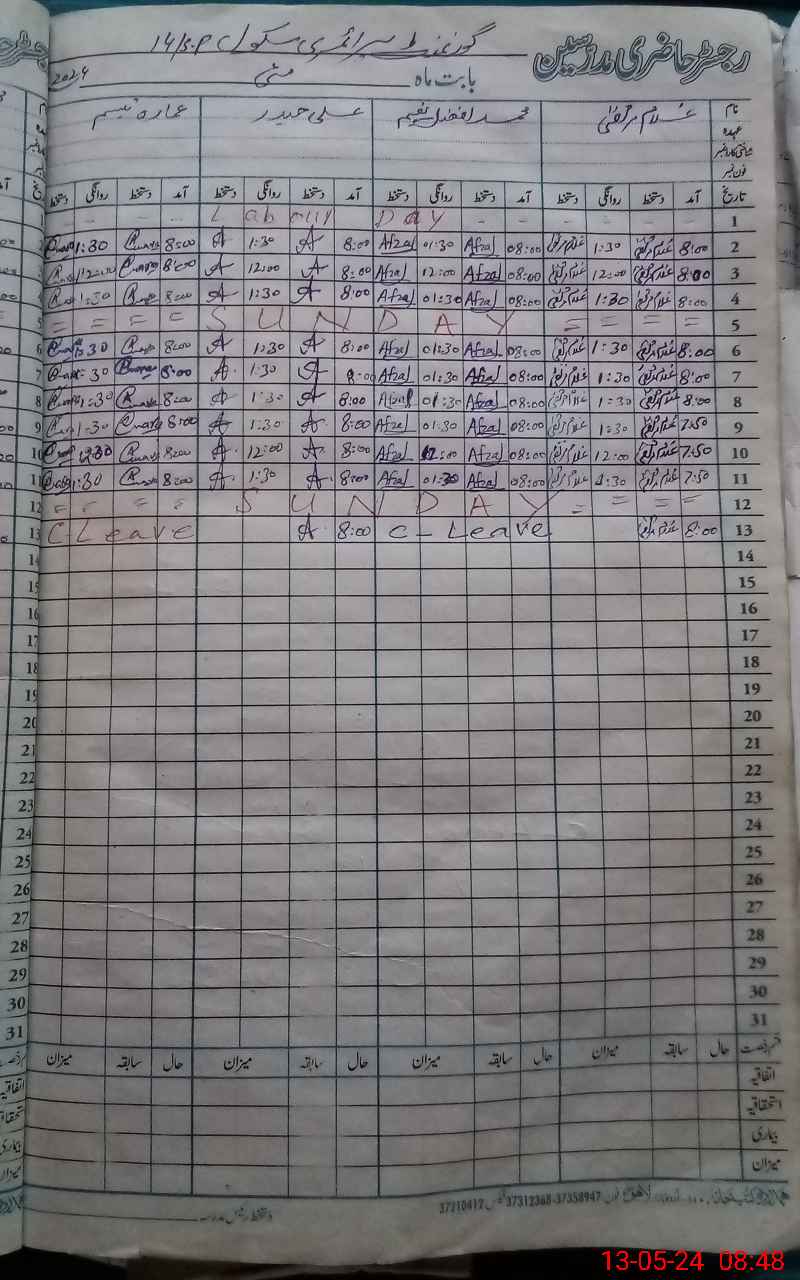 رجسٹر حاضری مدرسین گورنمنٹ پرائمری سکول 14/S.P
بابت ماہ مئی 2024
نام غلام مرتضیٰ محمد افضل نعیم علی حیدر عمارہ تبسم
عہدہ
شناختی کارڈ نمبر
فون نمبر
تاریخ آمد دستخط روانگی دستخط آمد دستخط روانگی دستخط آمد دستخط روانگی دستخط آمد دستخط روانگی دستخط
1 Labour Day
2 8:00 غلام مرتضیٰ 1:30 غلام مرتضیٰ 08:00 Afzal 01:30 Afzal 8:00 A 1:30 A 8:00 1:30
3 8:00 غلام مرتضیٰ 12:00 غلام مرتضیٰ 08:00 Afzal 12:00 Afzal 8:00 A 12:00 A 8:00 12:00
4 8:00 غلام مرتضیٰ 1:30 غلام مرتضیٰ 08:00 Afzal 01:30 Afzal 8:00 A 1:30 A 8:00 1:30
5 = = = = S U N D A Y = = = =
6 8:00 غلام مرتضیٰ 1:30 غلام مرتضیٰ 08:00 Afzal 01:30 Afzal 8:00 A 1:30 A 8:00 1:30
7 8:00 غلام مرتضیٰ 1:30 غلام مرتضیٰ 08:00 Afzal 01:30 Afzal 8:00 A 1:30 A 8:00 1:30
8 8:00 غلام مرتضیٰ 1:30 غلام مرتضیٰ 08:00 Afzal 01:30 Afzal 8:00 A 1:30 A 8:00 1:30
9 7:50 غلام مرتضیٰ 1:30 غلام مرتضیٰ 08:00 Afzal 01:30 Afzal 8:00 A 1:30 A 8:00 1:30
10 7:50 غلام مرتضیٰ 12:00 غلام مرتضیٰ 08:00 Afzal 12:00 Afzal 8:00 A 12:00 A 8:00
11 7:50 غلام مرتضیٰ 1:30 غلام مرتضیٰ 08:00 Afzal 01:30 Afzal 8:00 A 1:30 A 8:00 1:30
12 = = = = S U N D A Y = = = =
13 8:00 غلام مرتضیٰ C-Leave 8:00 A C-Leave
14
15
16
17
18
19
20
21
22
23
24
25
26
27
28
29
30
31
قسم رخصت حال سابقہ میزان حال سابقہ میزان حال سابقہ میزان حال سابقہ میزان
اتفاقیہ
استحقاقیہ
بیماری
میزان
37210417 37312368-37358947
13-05-24 08:48